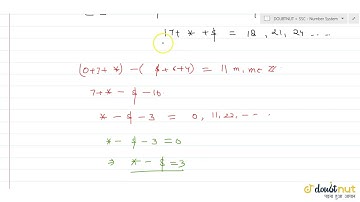 DOUBTNUT > SSC : Number System
17+ * + $ = 18, 21, 24 ....
(0+7+ *) - ( $+6+4) = 11 m, m∈ Z
7+ * - $ - 10
* - $ - 3 = 0, 11, 22, - - -
* - $ - 3 = 0
⇒ * - $ = 3
doubtnut